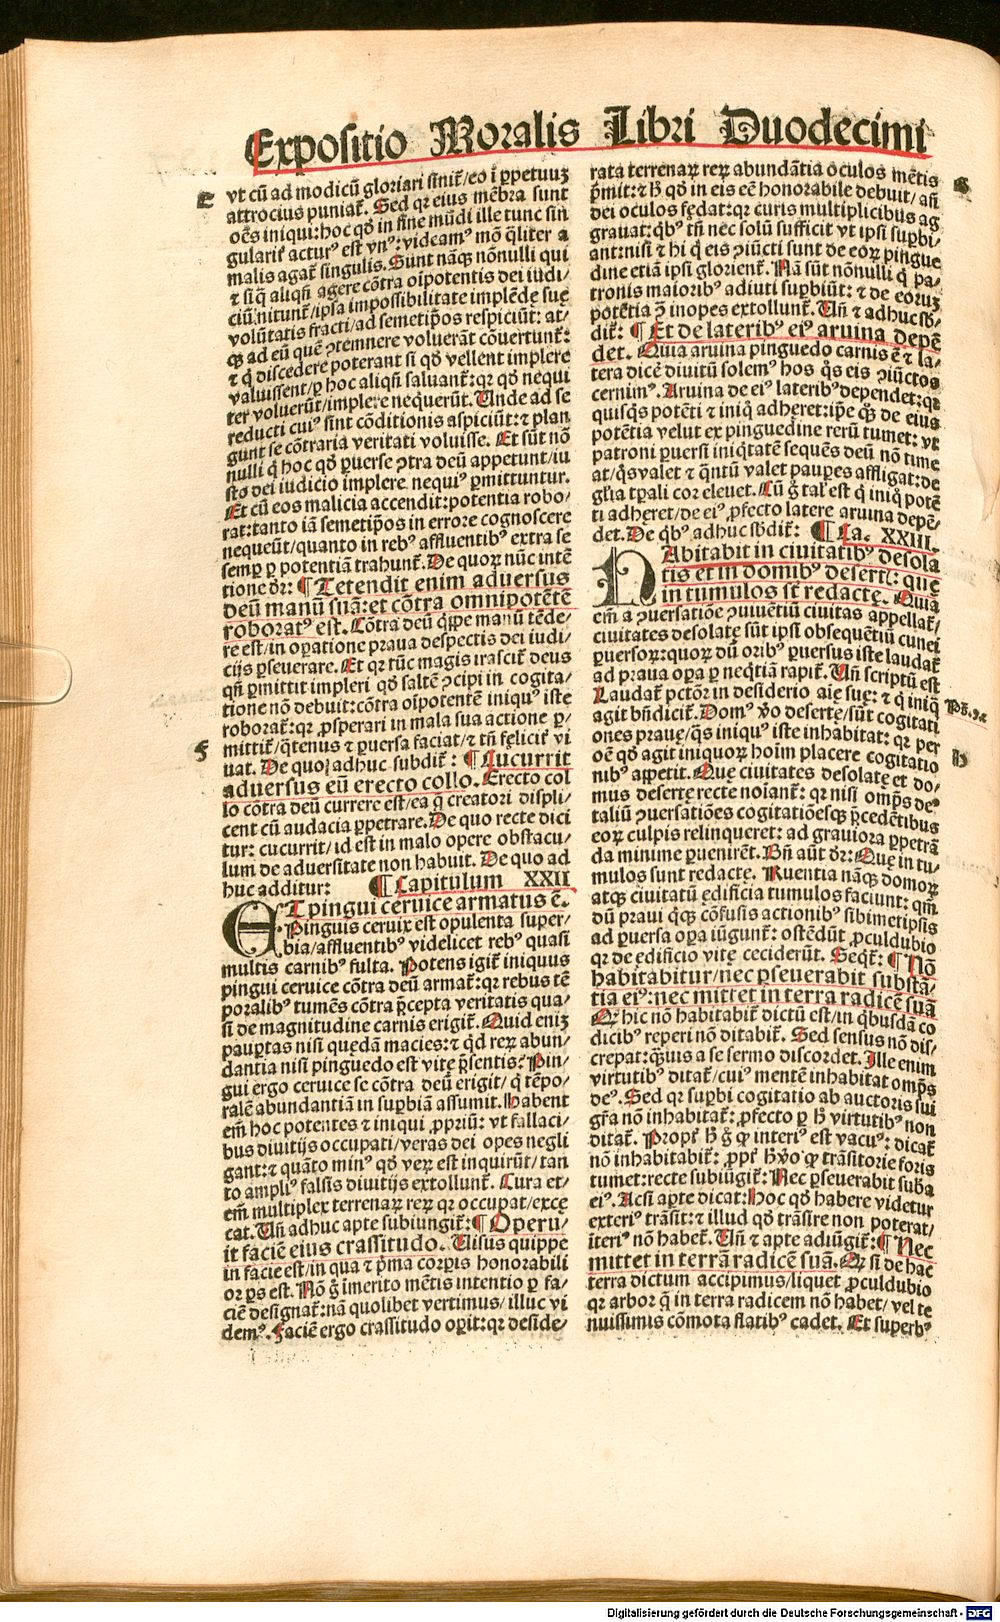 Expositio Moralis Libri Duodecimi
E
vt cū ad modicū gloriari sinit᷑/eo ī ꝑpetuuꝫ
attrocius puniat᷑. Sed qꝛ eius mēbra sunt
oēs iniqui: hoc qḋ in fine mūdi ille tunc sin
gularit᷑ actur᷒ est vn᷒: videam᷒ mō q̄liter a
malis agat᷑ singulis. Sunt nāqꝫ nōnulli qui
⁊ si q̇ aliqn̄ agere cōtra oīpotentis dei iudi/
ciū nitunt᷑/ipsa impossibilitate implēdę suę
volūtatis fracti/ad semetip̄os respiciūt: at/
qꝫ ad eū quē ꝯtemnere voluerāt cōuertunt᷑:
⁊ q̇ discedere poterant si qḋ vellent implere
valuissent/ꝑ hoc aliqn̄ saluant᷑: qꝛ qḋ nequi
ter voluerūt/implere nequerūt. Unde ad se
reducti cui᷒ sint cōditionis aspiciūt: ⁊ plan
gunt se cōtraria veritati voluisse. Et sūt nō
nulli q̇ hoc qḋ ꝑuerse ꝯtra deū appetunt/iu
sto dei iudicio implere nequi᷒ ꝑmittuntur.
Et cū eos malicia accendit: potentia robo/
rat: tanto iā semetip̄os in errore cognoscere
nequeūt/quanto in reb᷒ affluentib᷒ extra se
semꝑ ꝑ potentiā trahunt᷑. De quoꝝ nūc intē
tione dr̄: ¶ Tetendit enim aduersus
deū manū suā: et cōtra omnipotētē
roborat᷒ est. Cōtra deū q̇ppe manū tēde/
re est/in oꝑatione praua despectis dei iudi/
cijs ꝑseuerare. Et qꝛ tūc magis irascit᷑ deus
qn̄ ꝑmittit impleri qḋ saltē ꝯcipi in cogita/
tione nō debuit: cōtra oīpotentē iniqu᷒ iste
roborat᷑: qꝛ ꝓsperari in mala sua actione ꝑ/
F
mittit᷑/q̄tenus ⁊ ꝑuersa faciat/⁊ tn̄ fęlicit᷑ vi
uat. De quo adhuc subdit᷑: ¶ Cucurrit
aduersus eū erecto collo. Erecto col
lo cōtra deū currere est/ea q̄ creatori displi/
cent cū audacia ꝑpetrare. De quo recte dici
tur: cucurrit/id est in malo opere obstacu/
lum de aduersitate non habuit. De quo ad
huc additur: ¶ Capitulum XXII
ET pingui ceruice armatus ē.
Pinguis ceruix est opulenta super/
bia/affluentib᷒ videlicet reb᷒ quasi
multis carnib᷒ fulta. Potens igit᷑ iniquus
pingui ceruice cōtra deū armat᷑: qꝛ rebus tē
poralib᷒ tumēs cōtra p̄cepta veritatis qua/
si de magnitudine carnis erigit᷑. Quid eniꝫ
pauꝑtas nisi quędam macies: ⁊ qd̄ reꝝ abun/
dantia nisi pinguedo est vitę p̄sentis? Pin/
gui ergo ceruice se cōtra deū erigit/q̇ tēpo/
ralē abundantiā in suꝑbiā assumit. Habent
em̄ hoc potentes ⁊ iniqui ꝓpriū: vt fallaci/
bus diuitijs occupati/veras dei opes negli
gant: ⁊ quāto min᷒ qḋ veꝝ est inquirūt/tan
to ampli᷒ falsis diuitijs extollunt᷑. Cura et/
em̄ multiplex terrenaꝝ reꝝ qꝛ occupat/excę
cat. Un̄ adhuc apte subiungit᷑: ¶ Operu/
it faciē eius crassitudo. Uisus quippe
in facie est/in qua ⁊ p̄ma corꝑis honorabili
or ꝑs est. Nō ḡ īmerito mētis intentio ꝑ fa/
ciē designat᷑: nā quolibet vertimus/illuc vi
dem᷒. Faciē ergo crassitudo oꝑit: qꝛ deside/
rata terrenaꝝ reꝝ abundātia oculos mētis
G
p̄mit: ⁊ ħ qḋ in eis eē honorabile debuit/an̄
dei oculos fędat: qꝛ curis multiplicibus ag
grauat: qb᷒ tn̄ nec solū sufficit vt ipsi suꝑbi/
ant: nisi ⁊ hi q̇ eis ꝯiūcti sunt de eoꝝ pingue
dine etiā ipsi glorient᷑. Nā sūt nōnulli q̇ pa/
tronis maiorib᷒ adiuti suꝑbiūt: ⁊ de eoruꝫ
potētia ꝯ̄ inopes extollunt᷑. Un̄ ⁊ adhuc sb̄/
dit᷑: ¶ Et de laterib᷒ ei᷒ aruina depē
det. Quia aruina pinguedo carnis ē ⁊ la/
tera dicē diuitū solem᷒ hos q̇s eis ꝯiūctos
cernim᷒. Aruina de ei᷒ laterib᷒ dependet: qꝛ
quisq̇s potēti ⁊ iniq̇ adhęret: ip̄e qꝫ de eius
potētia velut ex pinguedine rerū tumet: vt
patroni ꝑuersi iniq̇tatē sequēs deū nō time
at/q̇s valet ⁊ q̄ntū valet pauꝑes affligat: de
gl̄ia tꝑali cor eleuet. Cū ḡ tal᷑ est q̇ iniq̇ potē
ti adhęret/de ei᷒ ꝓfecto latere aruina depē/
det. De qb᷒ adhuc sb̄dit᷑: ¶ Ca. XXIII.
HAbitabit in ciuitatib᷒ desola
tis et in domib᷒ deserti: que
in tumulos st̄ redactę. Quia
em̄ a ꝯuersatiōe ꝯuiuētiū ciuitas appellat᷑/
ciuitates desolatę sūt ipsi obsequētiū cunei
ꝑuersoꝝ: quoꝝ dū orib᷒ ꝑuersus iste laudat᷑
ad praua oꝑa ꝑ neq̇tiā rapit᷑. Un̄ scriptū est
Laudat᷑ pctōr in desiderio aīe suę: ⁊ q̇ iniq̇
Ps. 9.
agit bn̄dicit᷑. Dom᷒ v̊o desertę/sūt cogitati
ones prauę/qs iniqu᷒ iste inhabitat: qꝛ per
H
oē qḋ agit iniquoꝝ hoīm placere cogitatio
nib᷒ appetit. Quę ciuitates desolatę et do/
mus desertę recte noīant᷑: qꝛ nisi omp̄s de᷒
taliū ꝯuersatiōes cogitatiōesqꝫ p̄cedētibus
eoꝝ culpis relinqueret: ad grauiora ꝑpetrā
da minime ꝑuenirēt. Bn̄ aūt dr̄: Quę in tu/
mulos sunt redactę. Ruentia nāqꝫ domoꝝ
atqꝫ ciuitatū ędificia tumulos faciunt: qm̄
dū praui q̇qꝫ cōfusis actionib᷒ sibimetipsis
ad ꝑuersa oꝑa iūgunt᷑: ostēdūt ꝓculdubio
qꝛ de ędificio vitę ceciderūt. Seqt᷑: ¶ Nō
habitabitur/nec ꝑseuerabit substā/
tia ei᷒: nec mittet in terra radicē suā
Qꝛ hic nō habitabit᷑ dictū est/in qbusdā co
dicib᷒ reperi nō ditabit᷑. Sed sensus nō dis/
crepat: q̄uis a se sermo discordet. Ille enim
virtutib᷒ ditat᷑/cui᷒ mentē inhabitat omp̄s
de᷒. Sed qꝛ suꝑbi cogitatio ab auctoris sui
gr̄a nō inhabitat᷑: ꝓfecto ꝑ ħ virtutib᷒ non
ditat᷑. Propt᷑ ħ ḡ ꝙ interi᷒ est vacu᷒: dicat᷑
nō inhabitabit᷑: ꝓpt᷑ ħ v̊o ꝙ trāsitorie foris
tumet: recte subiūgit᷑: Nec ꝑseuerabit suba
ei᷒. Acsi apte dicat: Hoc qḋ habere videtur
exteri᷒ trāsit: ⁊ illud qḋ trāsire non poterat/
īteri᷒ nō habet. Un̄ ⁊ apte adiūgit᷑: ¶ Nec
mittet in terrā radicē suā. Qꝛ si de hac
terra dictum accipimus/liquet ꝓculdubio
qꝛ arbor q̄ in terra radicem nō habet/vel te
nuissimis cōmota flatib᷒ cadet. Et suꝑb᷒
Digitalisierung gefördert durch die Deutsche Forschungsgemeinschaft - DFG